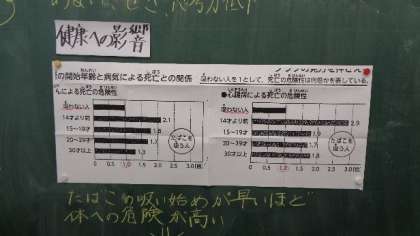 健康への影響
の開始年齢と病気による死亡との関係 吸わない人を1として、死亡の危険性は何倍かを表している。
んによる死亡の危険性
吸わない人
14才より前 2.1
15〜19才 1.8
20〜29才 1.7
30才以上 1.3
たばこを吸う人
0 0.5 1.0 1.5 2.0 2.5 3.0(倍)
●心臓病による死亡の危険性
吸わない人
14才より前 2.9
15〜19才 1.9
20〜29才 1.7
30才以上 1.8
たばこを吸う人
0 0.5 1.0 1.5 2.0 2.5 3.0(倍)
たばこの吸い始めが早いほど
体への危険が高い